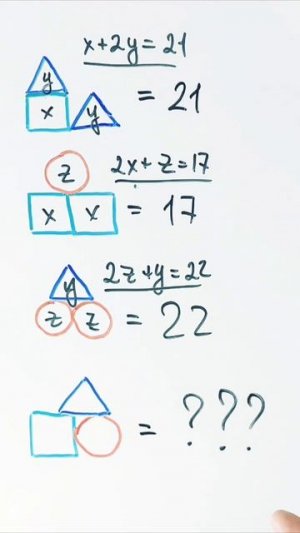 x+2y=21
y
x y = 21
z 2x+z=17
x x = 17
y 2z+y=22
z z = 22
= ???